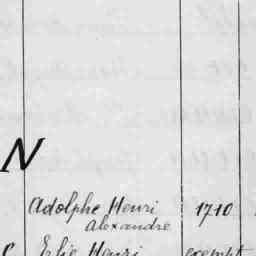 N
Adolphe Henri 1710
alexandre
C Elie Henri exempt